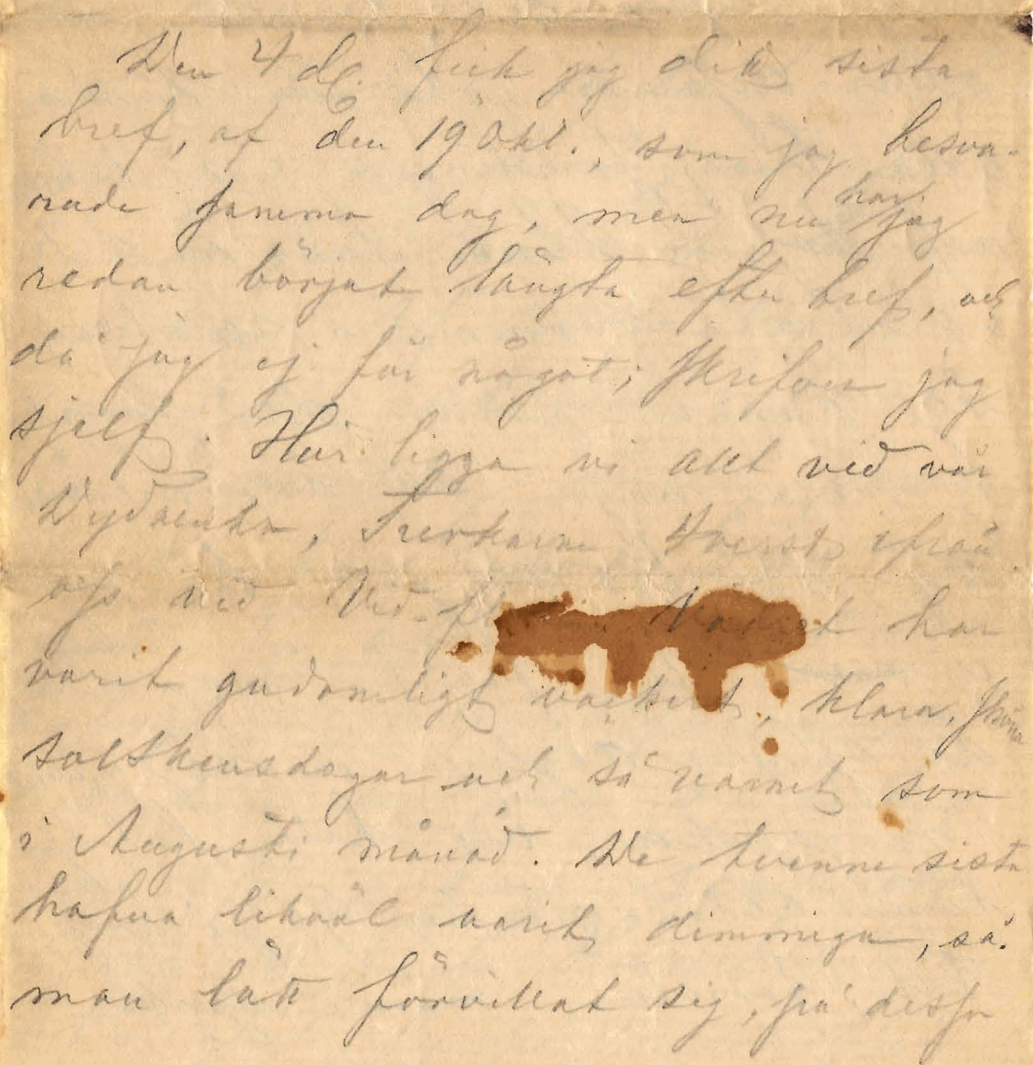 Den 4 d. fick jag ditt sista
bref, af den 19 Okt., som jag besva-
rade samma dag, men nu har jag
redan börjat längta efter bref, och
då jag ej får något, skrifver jag
sjelf. Här ligga vi allt vid vår
Turkarne 4 verst ifrån
oss vid Vid. Vädret har
varit gudomligt vackert, klara, sköna
solskensdagar och så varmt som
i Augusti månad. De tvenne sista
hafva likväl varit dimmiga, så
man lätt förvillat sig, på dessa